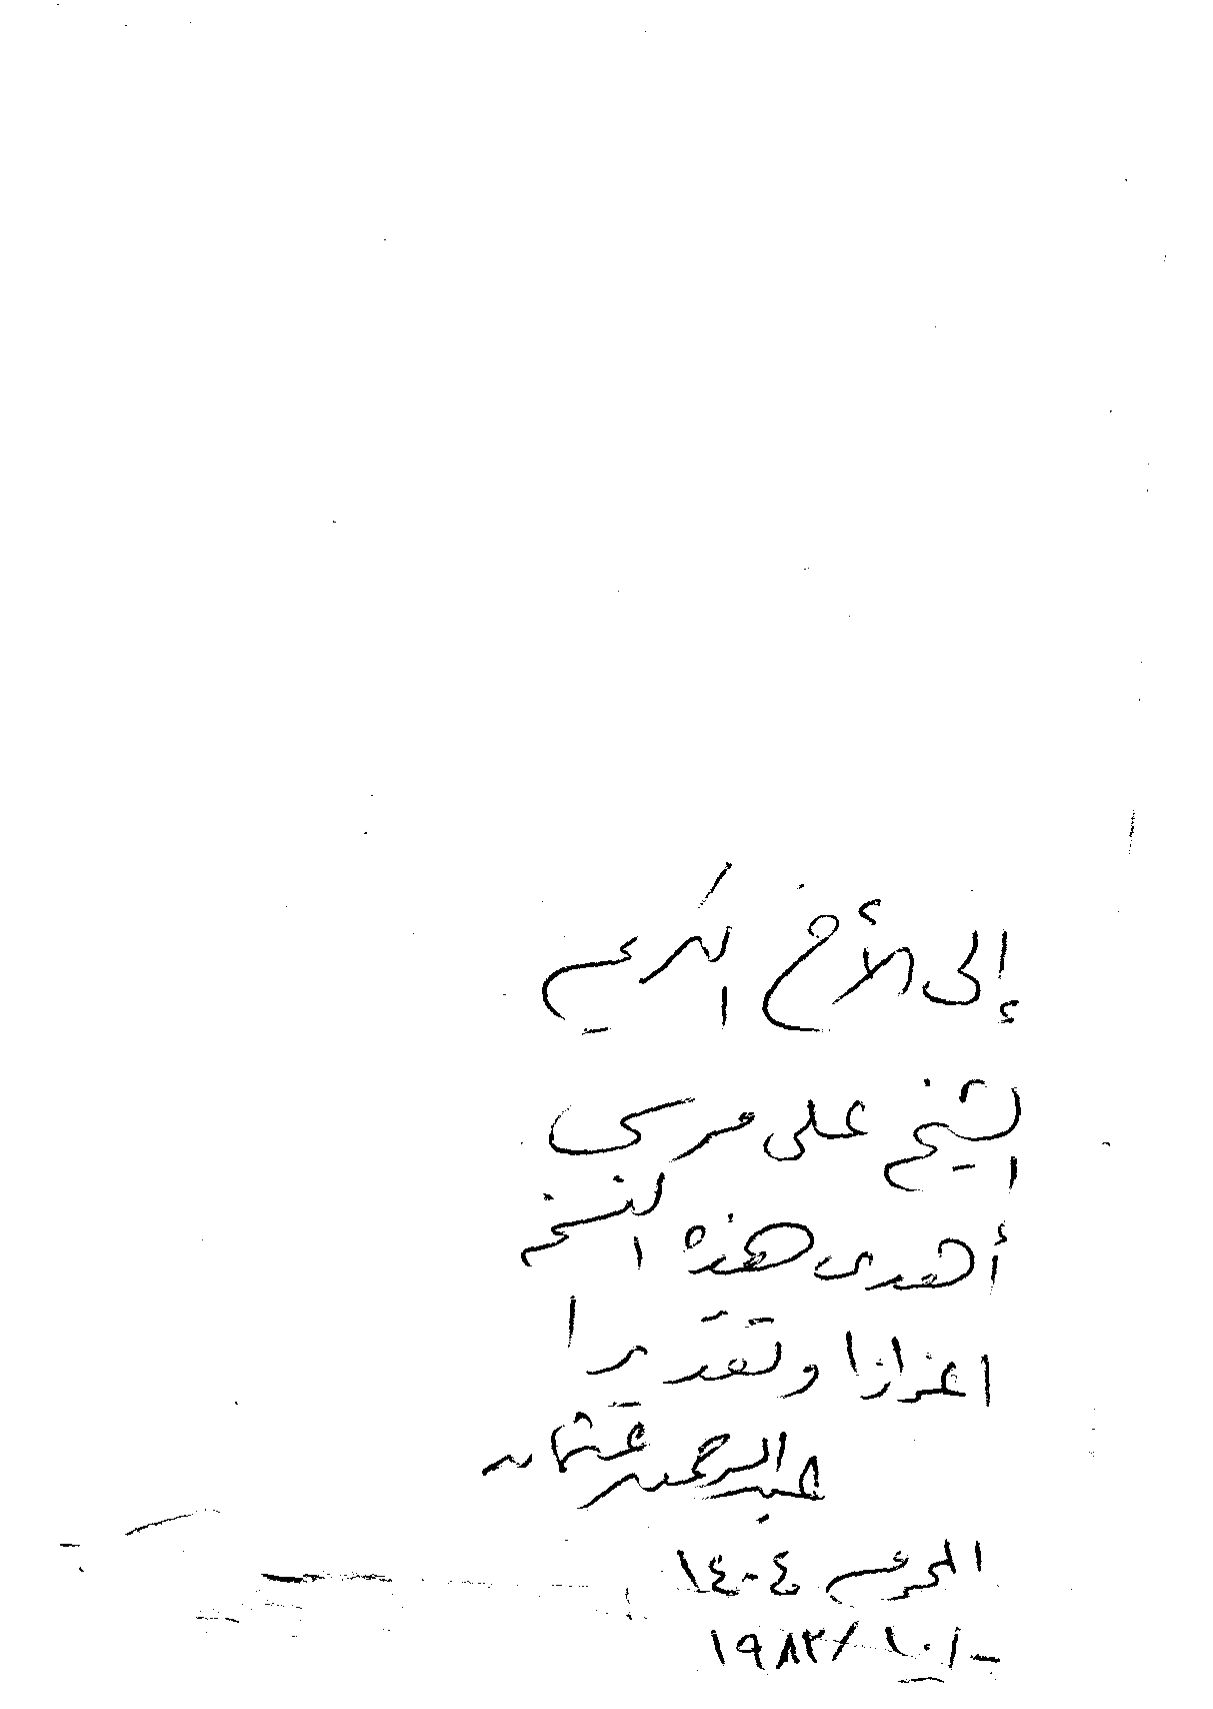 إلى الأخ الكريم
الشيخ على مرسى
أهدى هذه النسخه
اعزازا وتقديرا
عبد الرحمن عثمان
المحرم ١٤٠٤
-/١٠/ ١٩٨٣